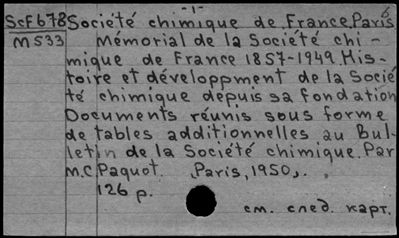 -1-
ScF678 Société chimique de France. Paris
M533 Mémorial de la Société chi-
mique de France 1857-1949. His-
toire et développment de la Socié
té chimique depuis sa fondation
Documents réunis sous forme
de tables additionnelles au Bul-
letin de la Société chimique. Par
M.C. Paquot. Paris, 1950,.
126 p.
см. след. карт.